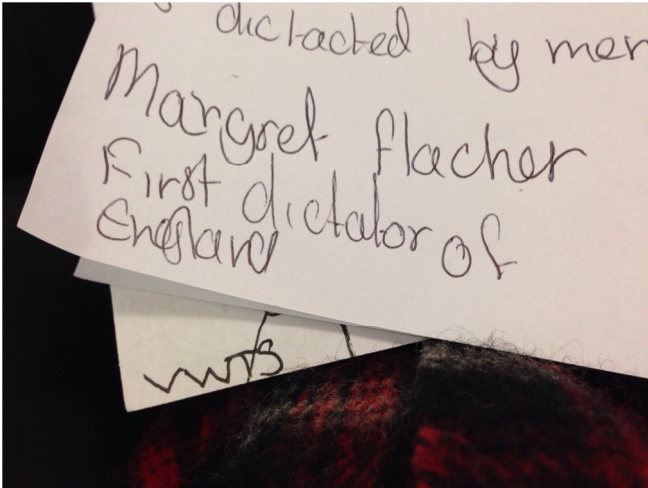 dictacted by men
Margret flacher
First dictator of
England